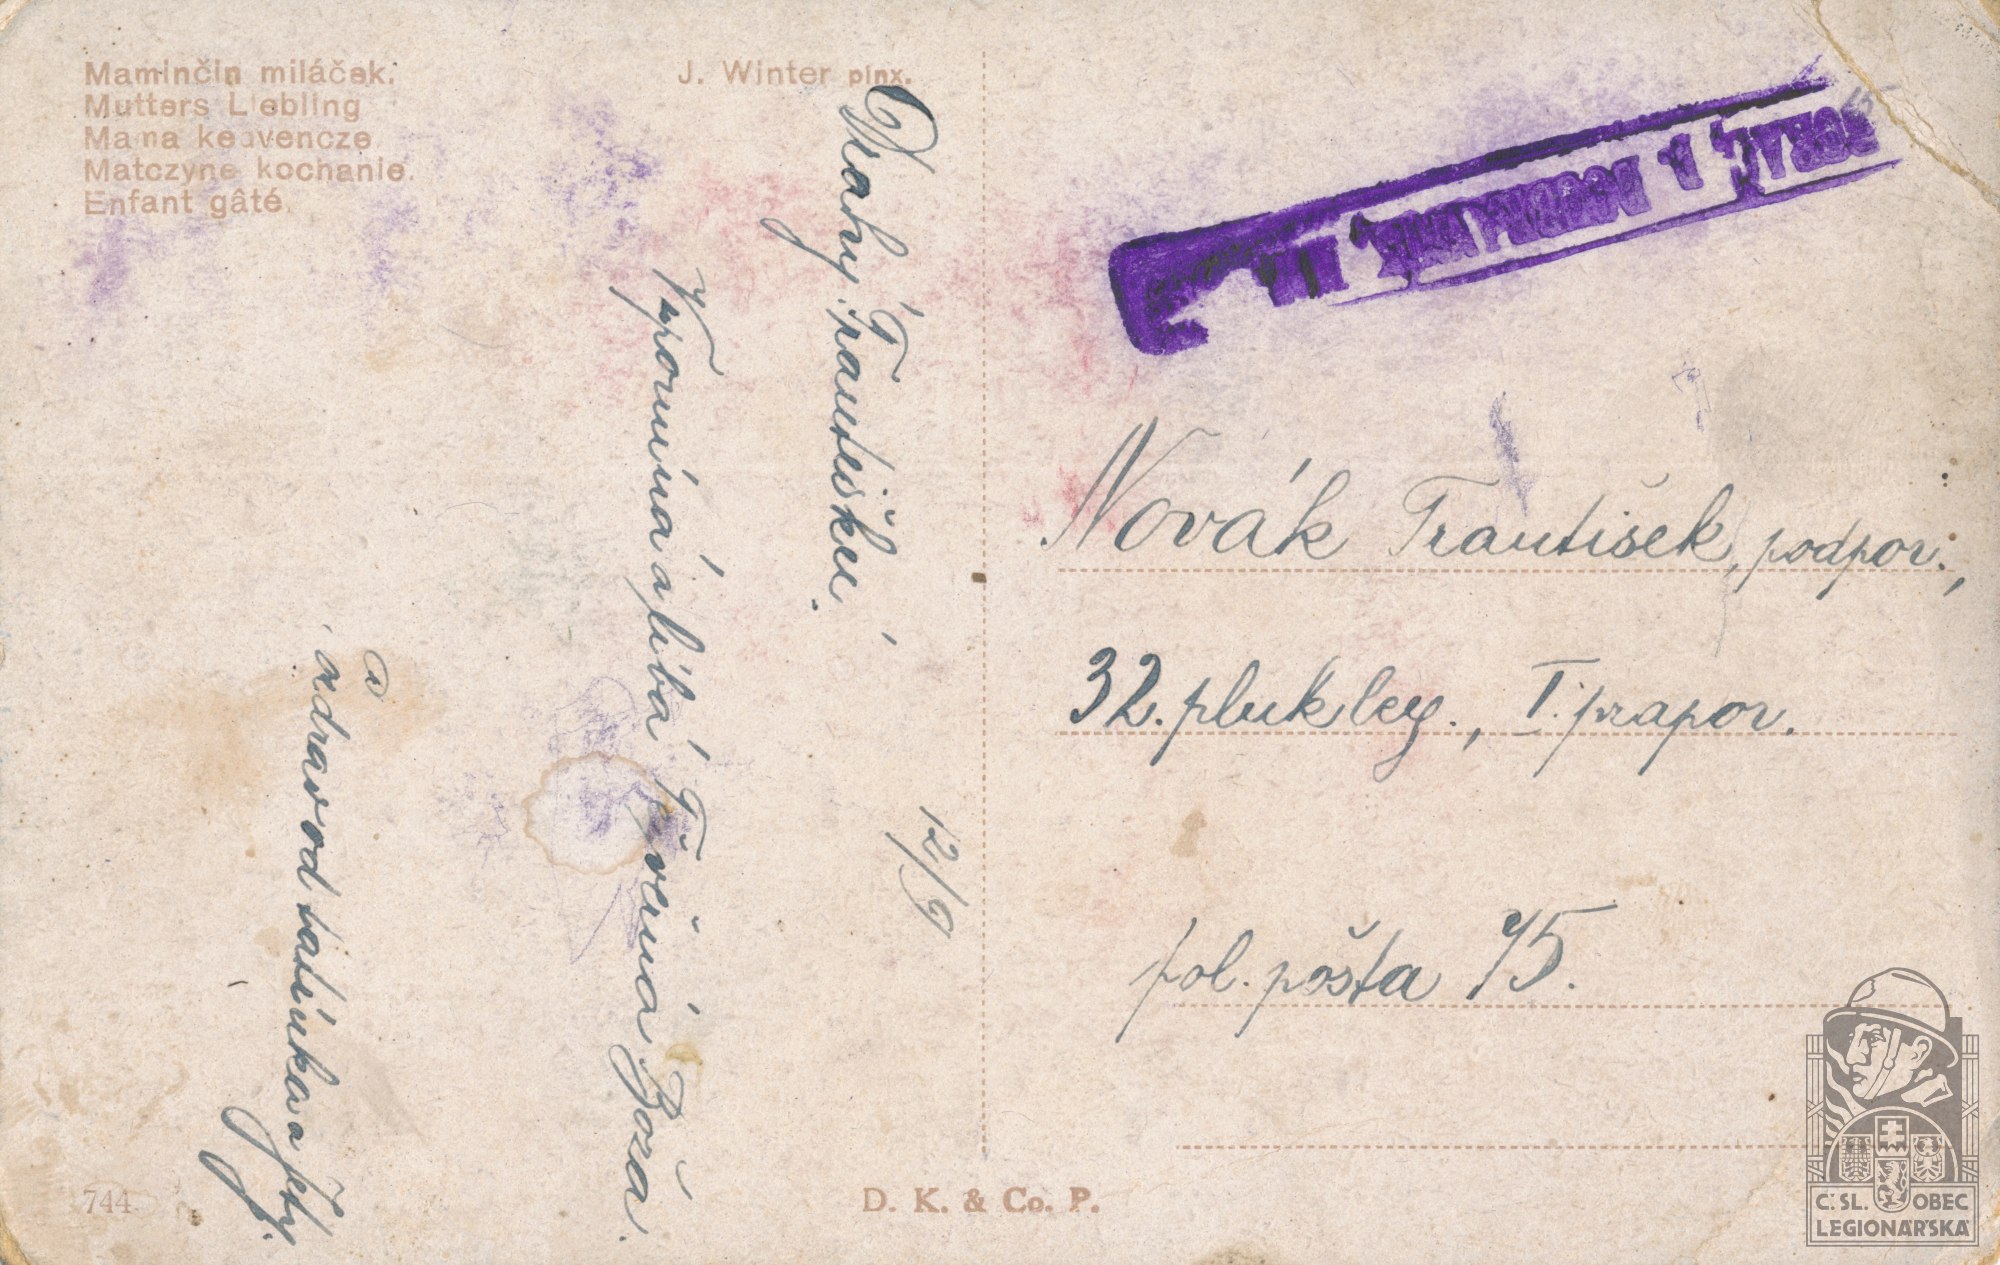 Maminčin miláček.
Mutters Liebling
Mama kedvencze
Matczyne kochanie.
Enfant gâté
J. Winter pinx.
12/9
Drahý Františku.
Vzpomíná a líbá
Boža.
a
zdrav od tatínka a
Novák František, podpor.,
32. pluk leg., I. prapor.
pol. pošta 45.
744
D. K. & Co. P.
Č. SL. OBEC
LEGIONÁŘSKÁ